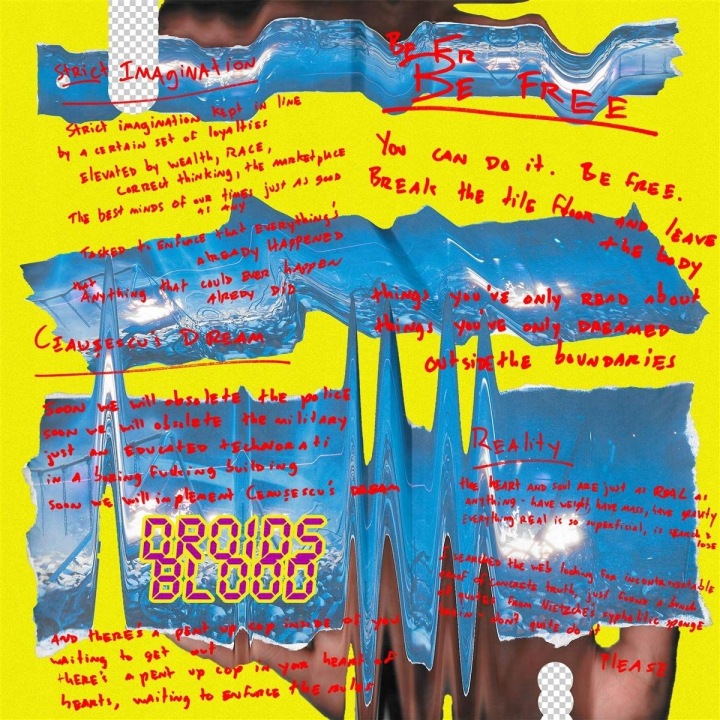 Strict IMAGINATION
Strict imagination kept in line
by a certain set of loyalties
Elevated by wealth, RACE,
correct thinking, the marketplace
The best minds of our times just as good
as any
Tasked to enforce that everything's
already HAPPENED
that
Anything that could ever happen
already did
Ceauşescu's DREAM
soon we will obsolete the police
soon we will obsolete the military
just an EDUCATED technorati
in a boring fucking building
soon we will implement Ceauşescu's DREAM
DROIDS
BLOOD
AND there's a pent up cop inside of you
waiting to get out
there's a pent up cop in your heart of
hearts, waiting to enforce the rules
BE FR
BE FREE
You can do it. BE FREE.
Break the tile floor and leave
the body
things you've only READ about
things you've only DREAMED
outside the boundaries
Reality
the HEART AND soul ARE just as REAL as
anything - have weight, have mass, have gravity
everything real is so superficial, is
lose
I searched the web looking for incontrovertable
proof of concrete truth, just found a bunch
of quotes from Nietzche's syphelitic sponge
brain - don't quite do it
PLEASE